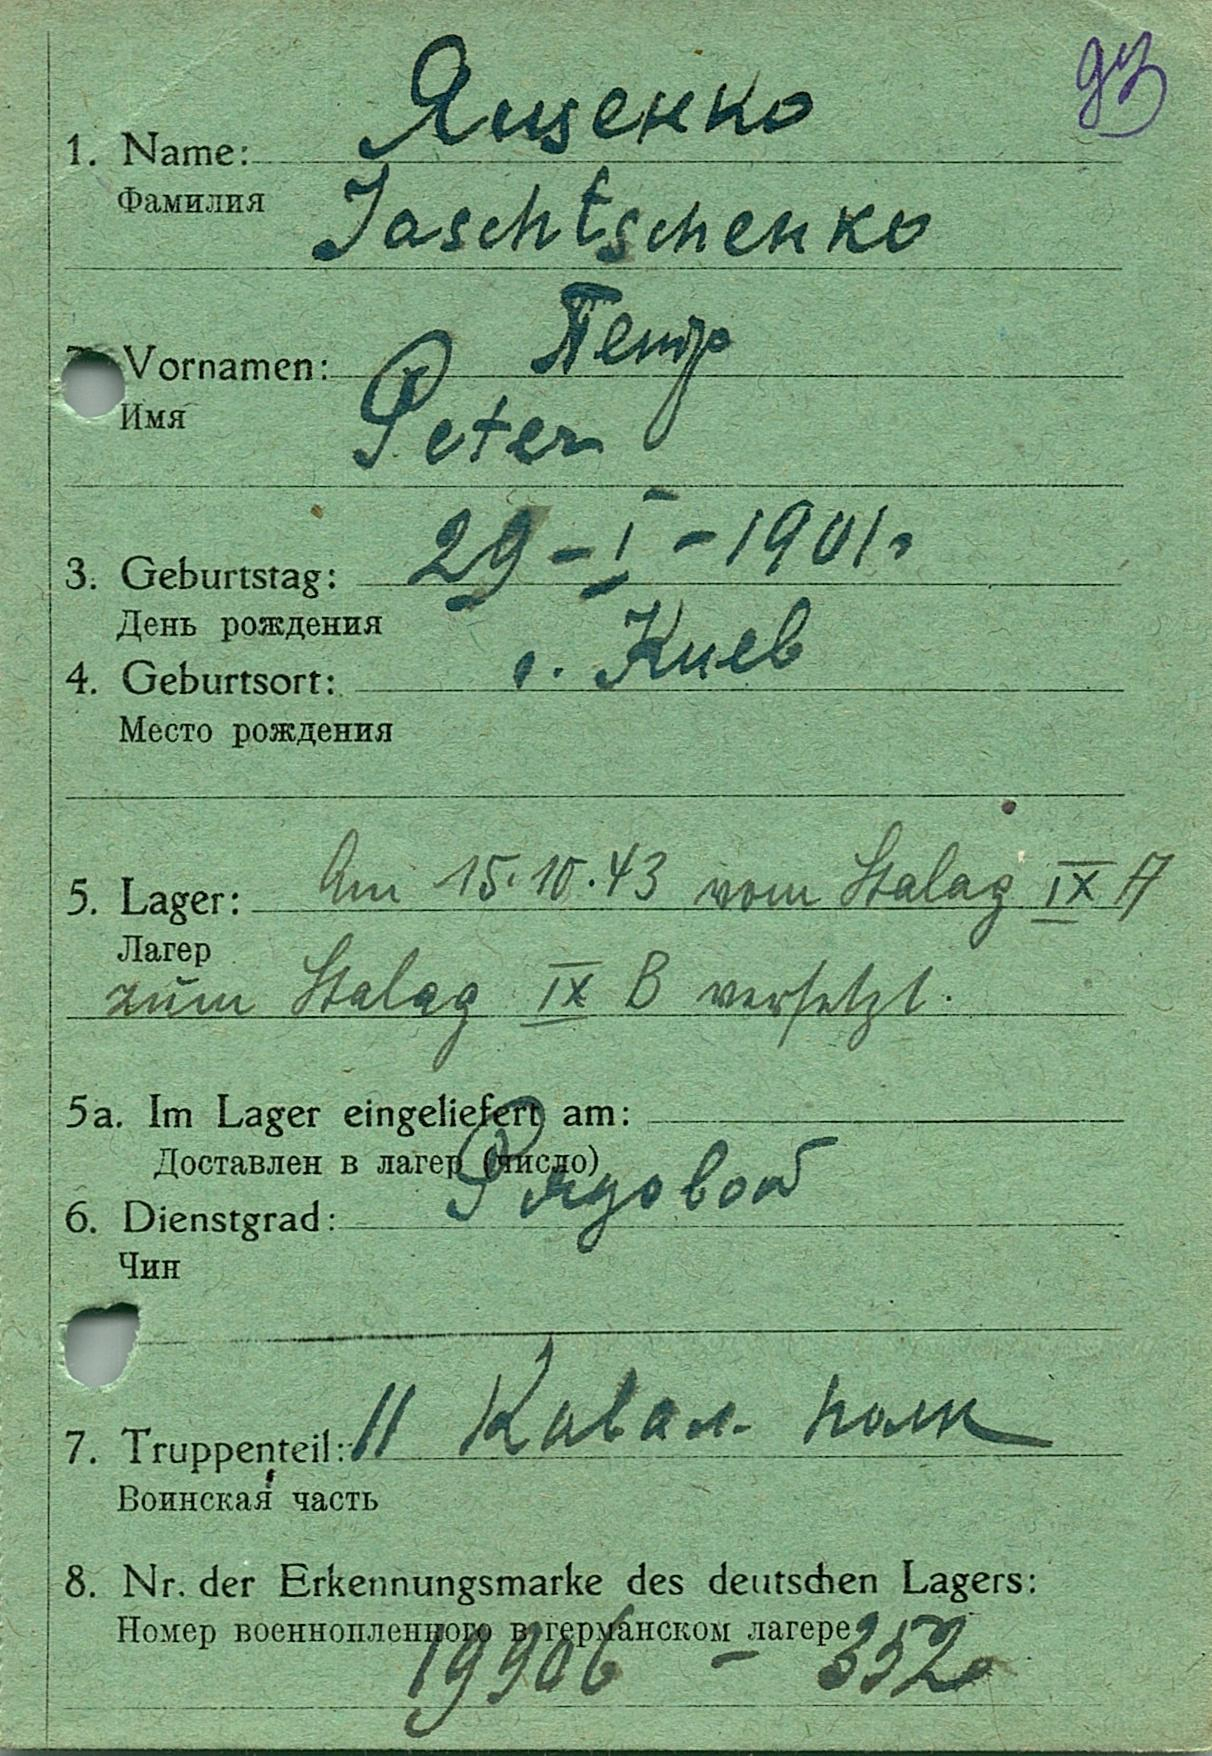 Ященко
1. Name:
Фамилия
Jaschtschenko
Петр
Vornamen:
Имя
Peter
3. Geburtstag: 29-I-1901г
День рождения
4. Geburtsort: г. Киев
Место рождения
5. Lager: Am 15.10.43 vom Stalag IX A
Лагер
zum Stalag IX B versetzt.
5a. Im Lager eingeliefert am:
Доставлен в лагер (число)
6. Dienstgrad: Рядовой
Чин
7. Truppenteil: 11 Кавал. полк
Воинская часть
8. Nr. der Erkennungsmarke des deutschen Lagers:
Номер военнопленного в германском лагере
19906 - 352